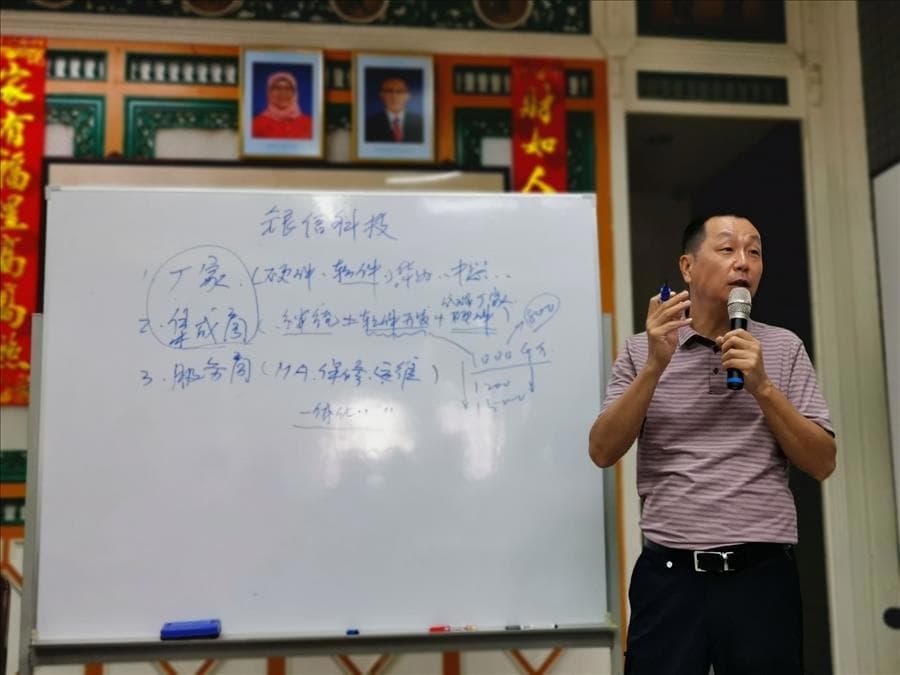 家有福星高高照
财如
银信科技
1. 厂家 (硬件、软件) 华为、中兴..
2. 集成商 (
软件开发 + 硬件)
500
1000千万
1200
1500
3. 服务商 (MA.保修.运维)
一体化.. ..